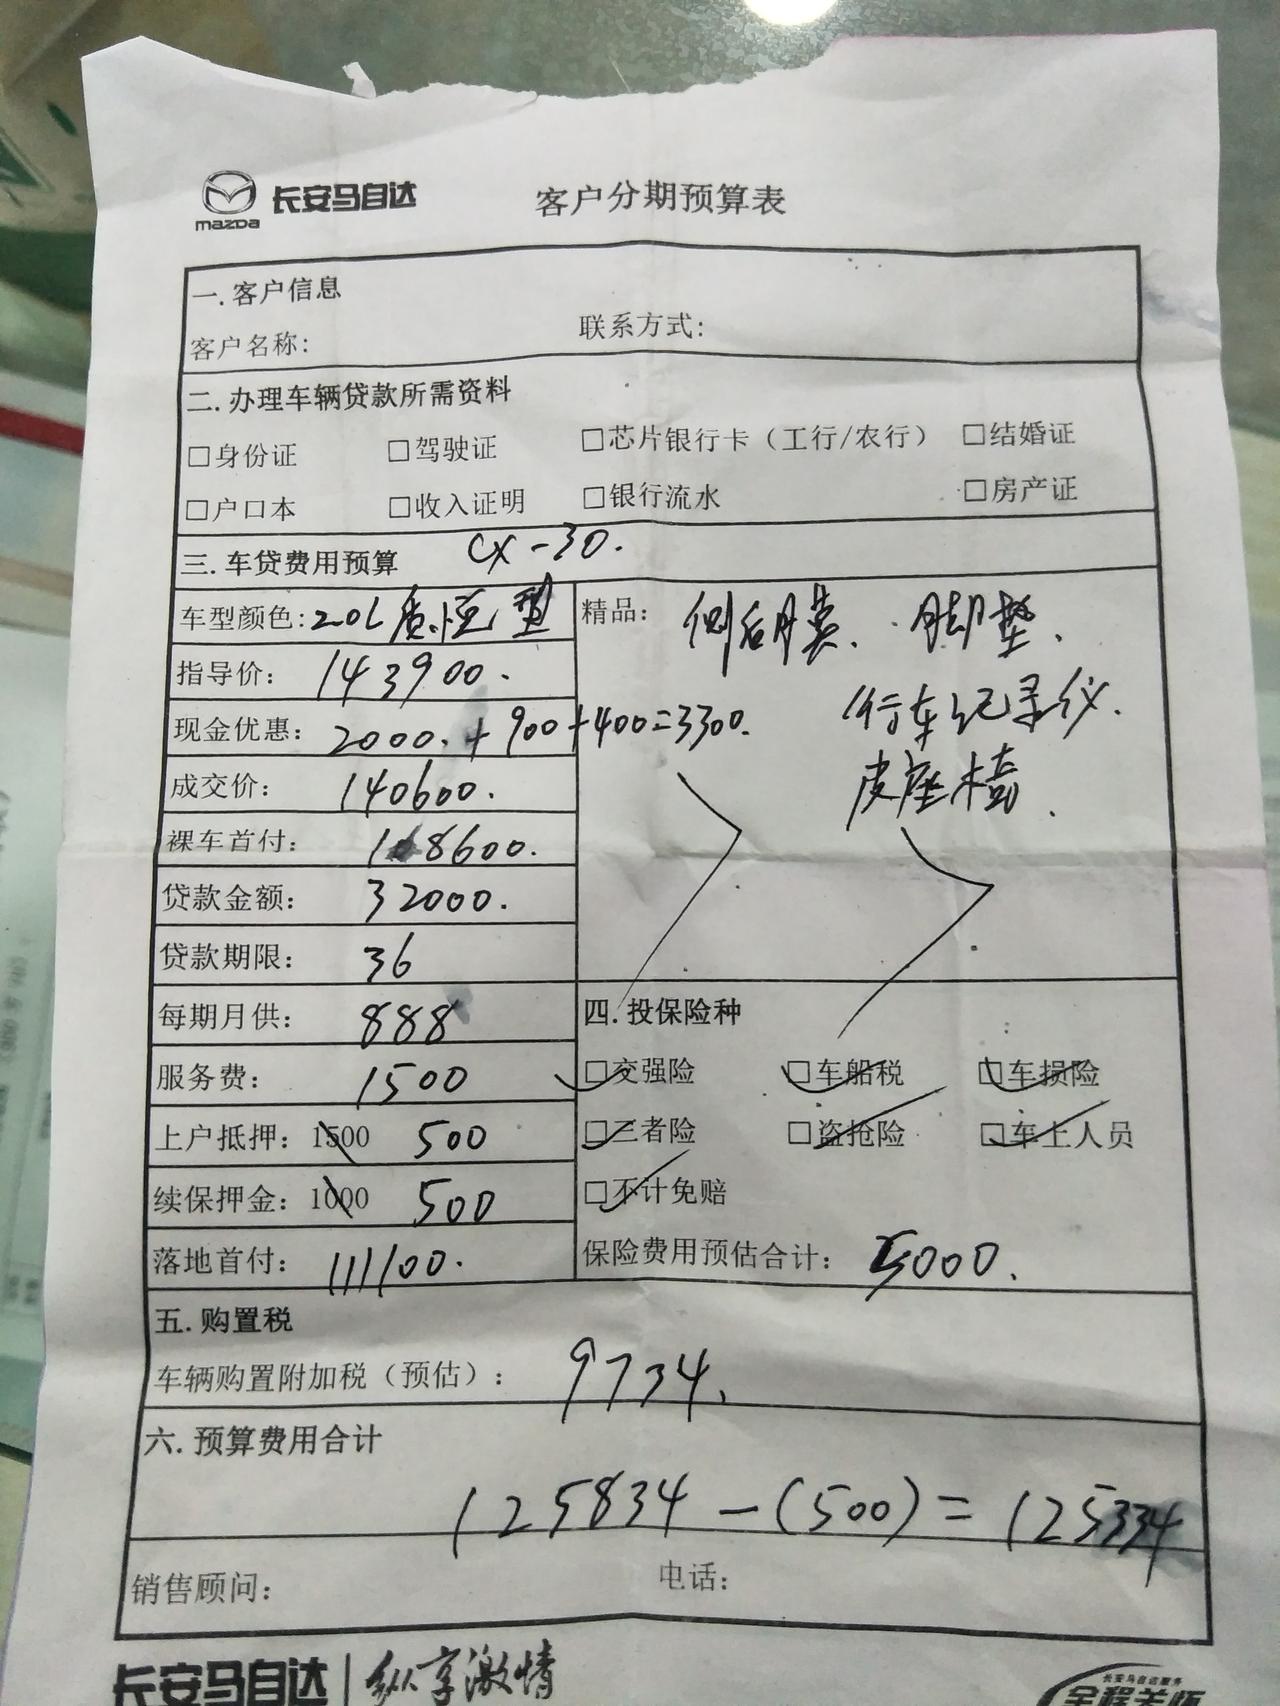 mazda 长安马自达 客户分期预算表
一.客户信息
客户名称: 联系方式:
二.办理车辆贷款所需资料
□身份证 □驾驶证 □芯片银行卡（工行/农行） □结婚证
□户口本 □收入证明 □银行流水 □房产证
三.车贷费用预算 CX-30.
车型颜色:2.0L质恒型 精品: 侧后膜. 脚垫.
指导价: 143900.
行车记录仪.
现金优惠: 2000.+900+400=3300.
皮座椅.
成交价: 140600.
裸车首付: 108600.
贷款金额: 32000.
贷款期限: 36
每期月供: 888 四.投保险种
服务费: 1500 □交强险 □车船税 □车损险
上户抵押: 1500 500 □三者险 □盗抢险 □车上人员
续保押金: 1000 500 □不计免赔
落地首付: 111100. 保险费用预估合计: 5000.
五.购置税
车辆购置附加税（预估）: 9734.
六.预算费用合计
125834-(500)=125334
销售顾问: 电话:
长安马自达 | 纵享激情
长安马自达服务